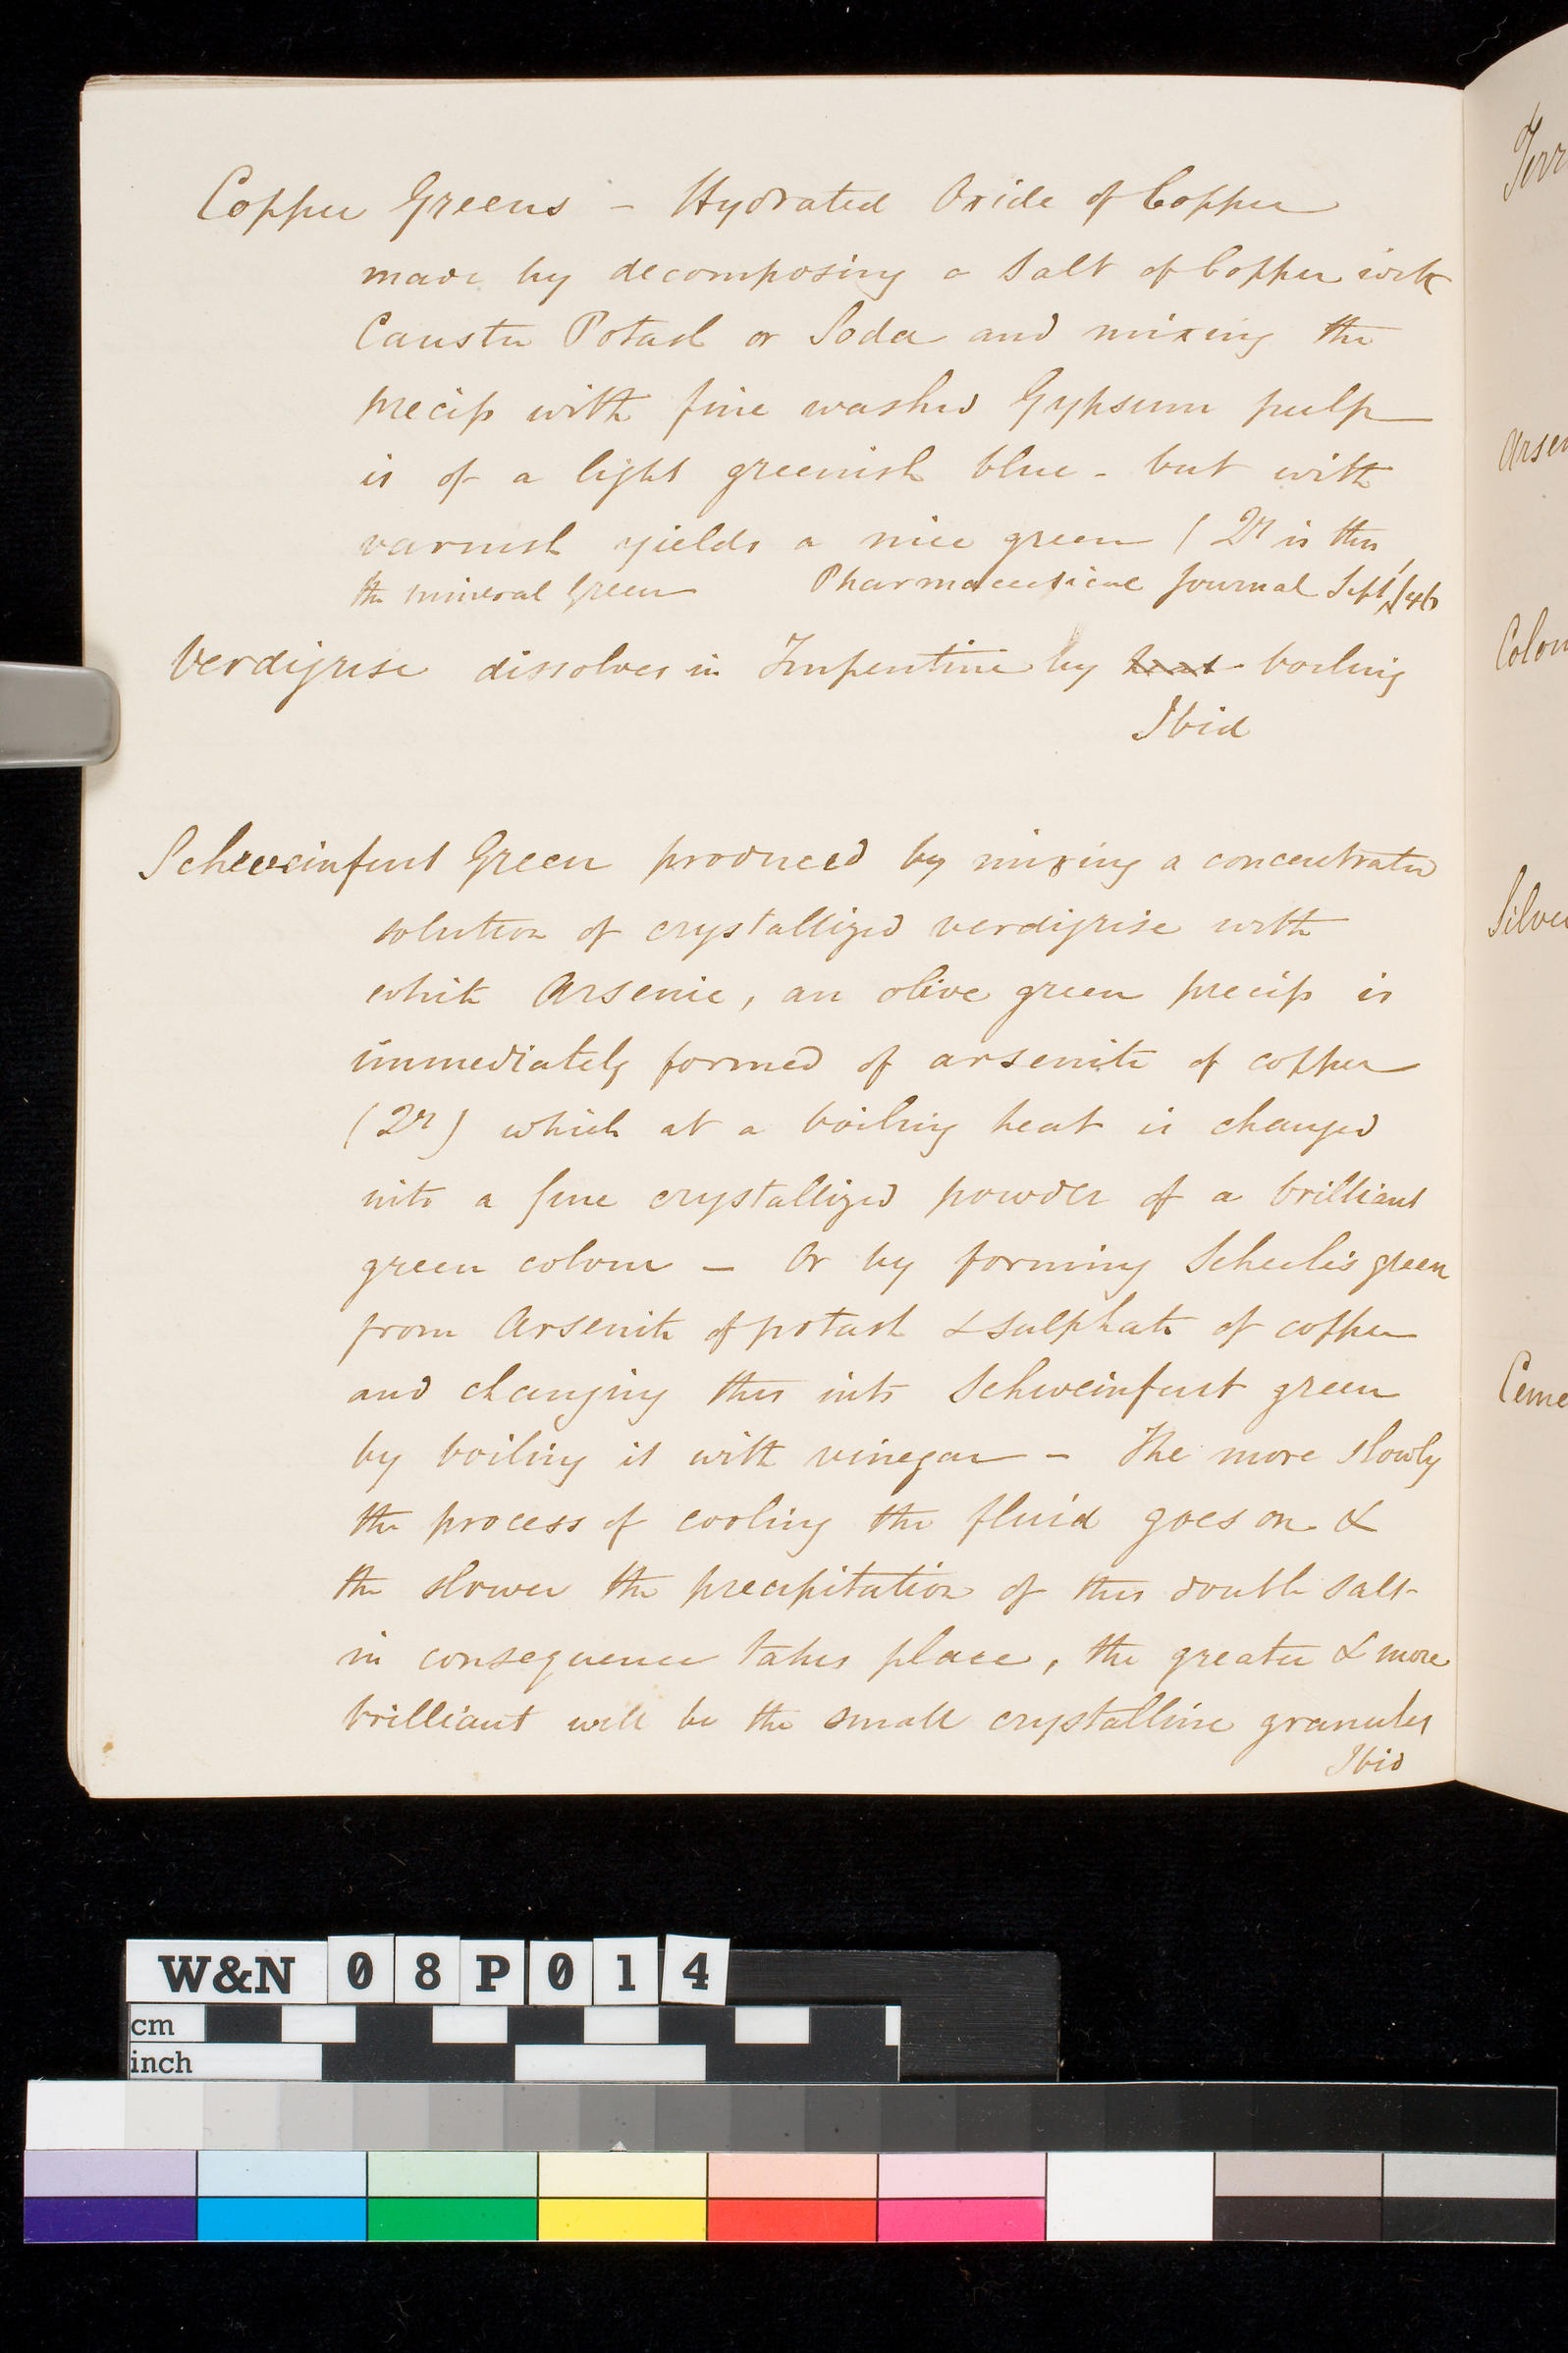 Copper Greens – Hydrated Oxide of Copper
made by decomposing a Salt of Copper with
Caustic Potash or Soda and mixing the
precip with fine washed Gypsum pulp
is of a light greenish blue – but with
varnish yields a nice green (Qr is this
the mineral Green Pharmaceutical Journal Sept 1/46
Verdigrise dissolves in Turpentine by heat boiling
Ibid
Schweinfurt Green produced by mixing a concentrated
solution of crystallized verdigrise with
white Arsenic, an olive green precip is
immediately formed of arsenite of copper
(Qr) which at a boiling heat is changed
into a fine crystallized powder of a brilliant
green colour – Or by forming Scheele's green
from Arsenite of potash & sulphate of copper
and changing this into Schweinfurt green
by boiling it with vinegar – The more slowly
the process of cooling the fluid goes on &
the slower the precipitation of this double salt
in consequence takes place, the greater & more
brilliant will be the small crystalline granules
Ibid
Terr
Arsen
Colou
Silver
Ceme
W&N 08P014
cm
inch